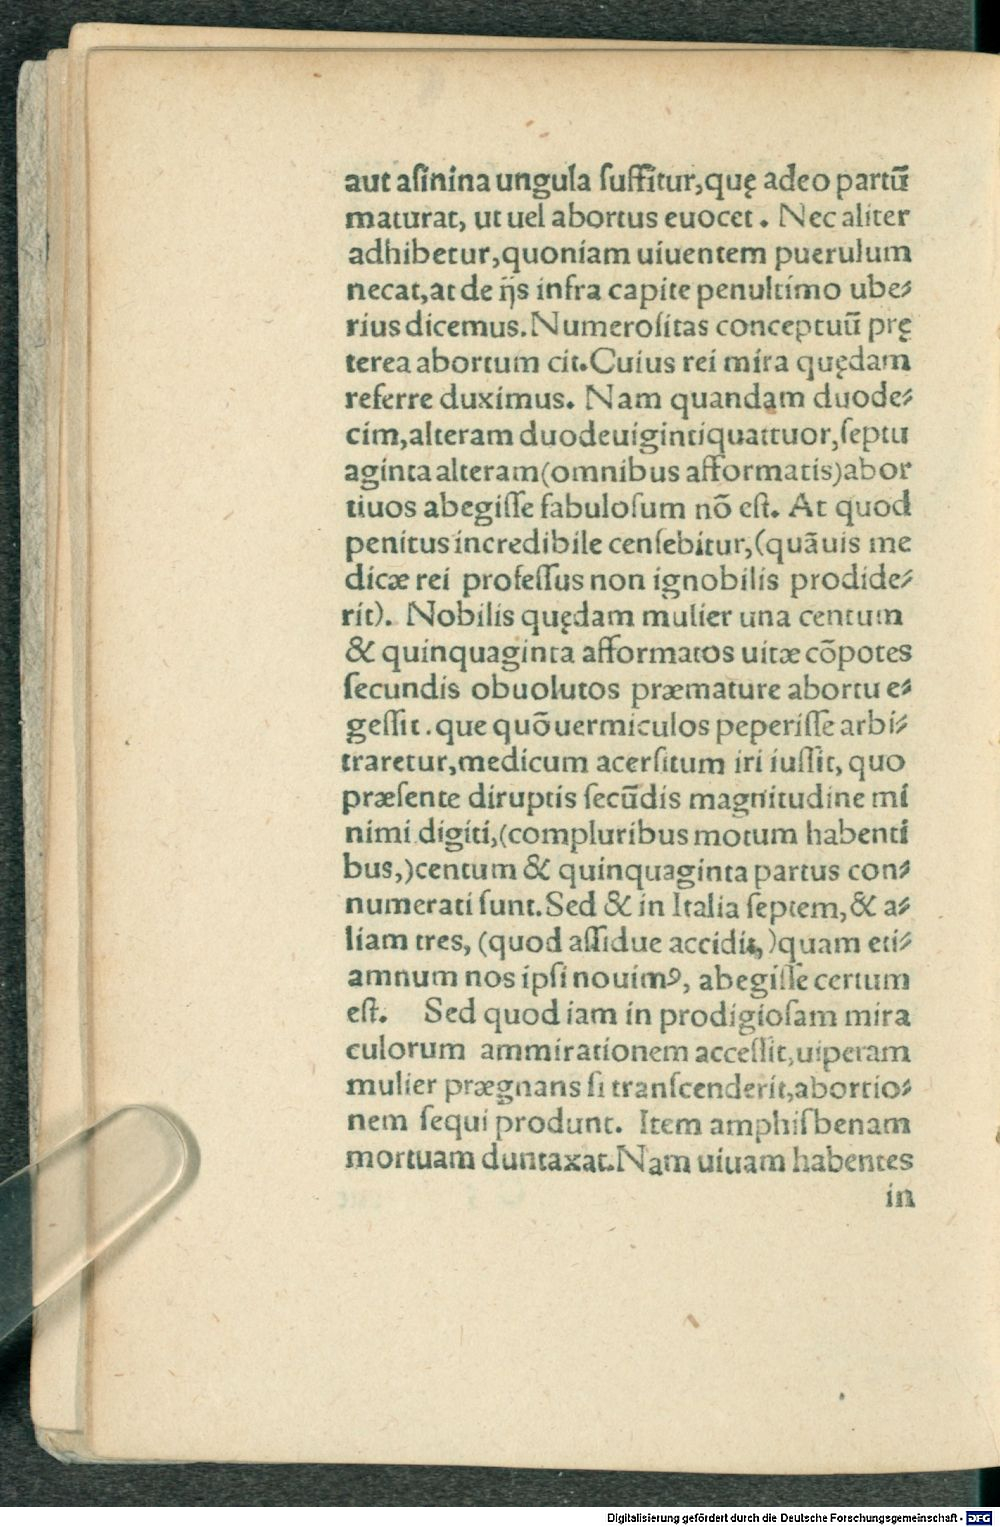 aut aſinina ungula ſuffitur,quę adeo partū
maturat, ut uel abortus euocet. Nec aliter
adhibetur,quoniam uiuentem puerulum
necat,at de ijs infra capite penultimo ube⸗
rius dicemus. Numeroſitas conceptuū prę
terea abortum cit. Cuius rei mira quędam
referre duximus. Nam quandam duode⸗
cim,alteram duodeuigintiquattuor,ſeptu
aginta alteram(omnibus afformatis)abor
tiuos abegiſſe fabuloſum nō eſt. At quod
penitus incredibile cenſebitur,(quāuis me
dicæ rei profeſſus non ignobilis prodide⸗
rit). Nobilis quędam mulier una centum
& quinquaginta afformatos uitæ cōpotes
ſecundis obuolutos præmature abortu e⸗
geſſit.que quō uermiculos peperiſſe arbi⸗
traretur,medicum acerſitum iri iuſſit, quo
præſente diruptis ſecūdis magnitudine mi
nimi digiti,(compluribus motum habenti
bus,)centum & quinquaginta partus con⸗
numerati ſunt. Sed & in Italia ſeptem,& a⸗
liam tres, (quod aſſidue accidit,)quam eti⸗
amnum nos ipſi nouimꝰ, abegiſſe certum
eſt. Sed quod iam in prodigioſam mira
culorum ammirationem acceſſit,uiperam
mulier prægnans ſi tranſcenderit,abortio⸗
nem ſequi produnt. Item amphiſbenam
mortuam duntaxat. Nam uiuam habentes
in
Digitalisierung gefördert durch die Deutsche Forschungsgemeinschaft - DFG